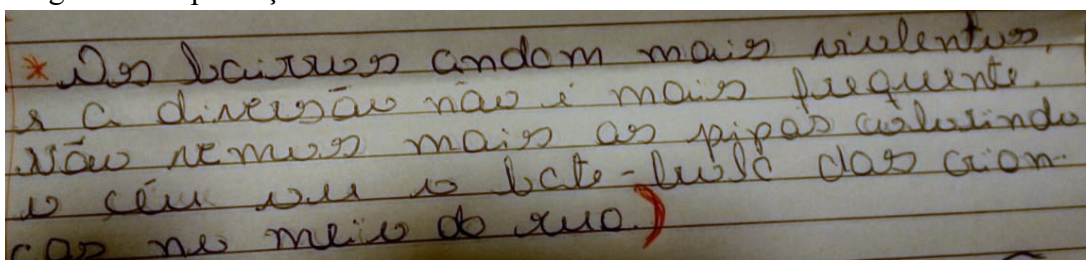 * Os bairros andam mais violentos,
e a diversão não é mais frequente.
Não vemos mais as pipas colorindo
o céu ou o bate-bola das crian-
ças no meio da rua.)